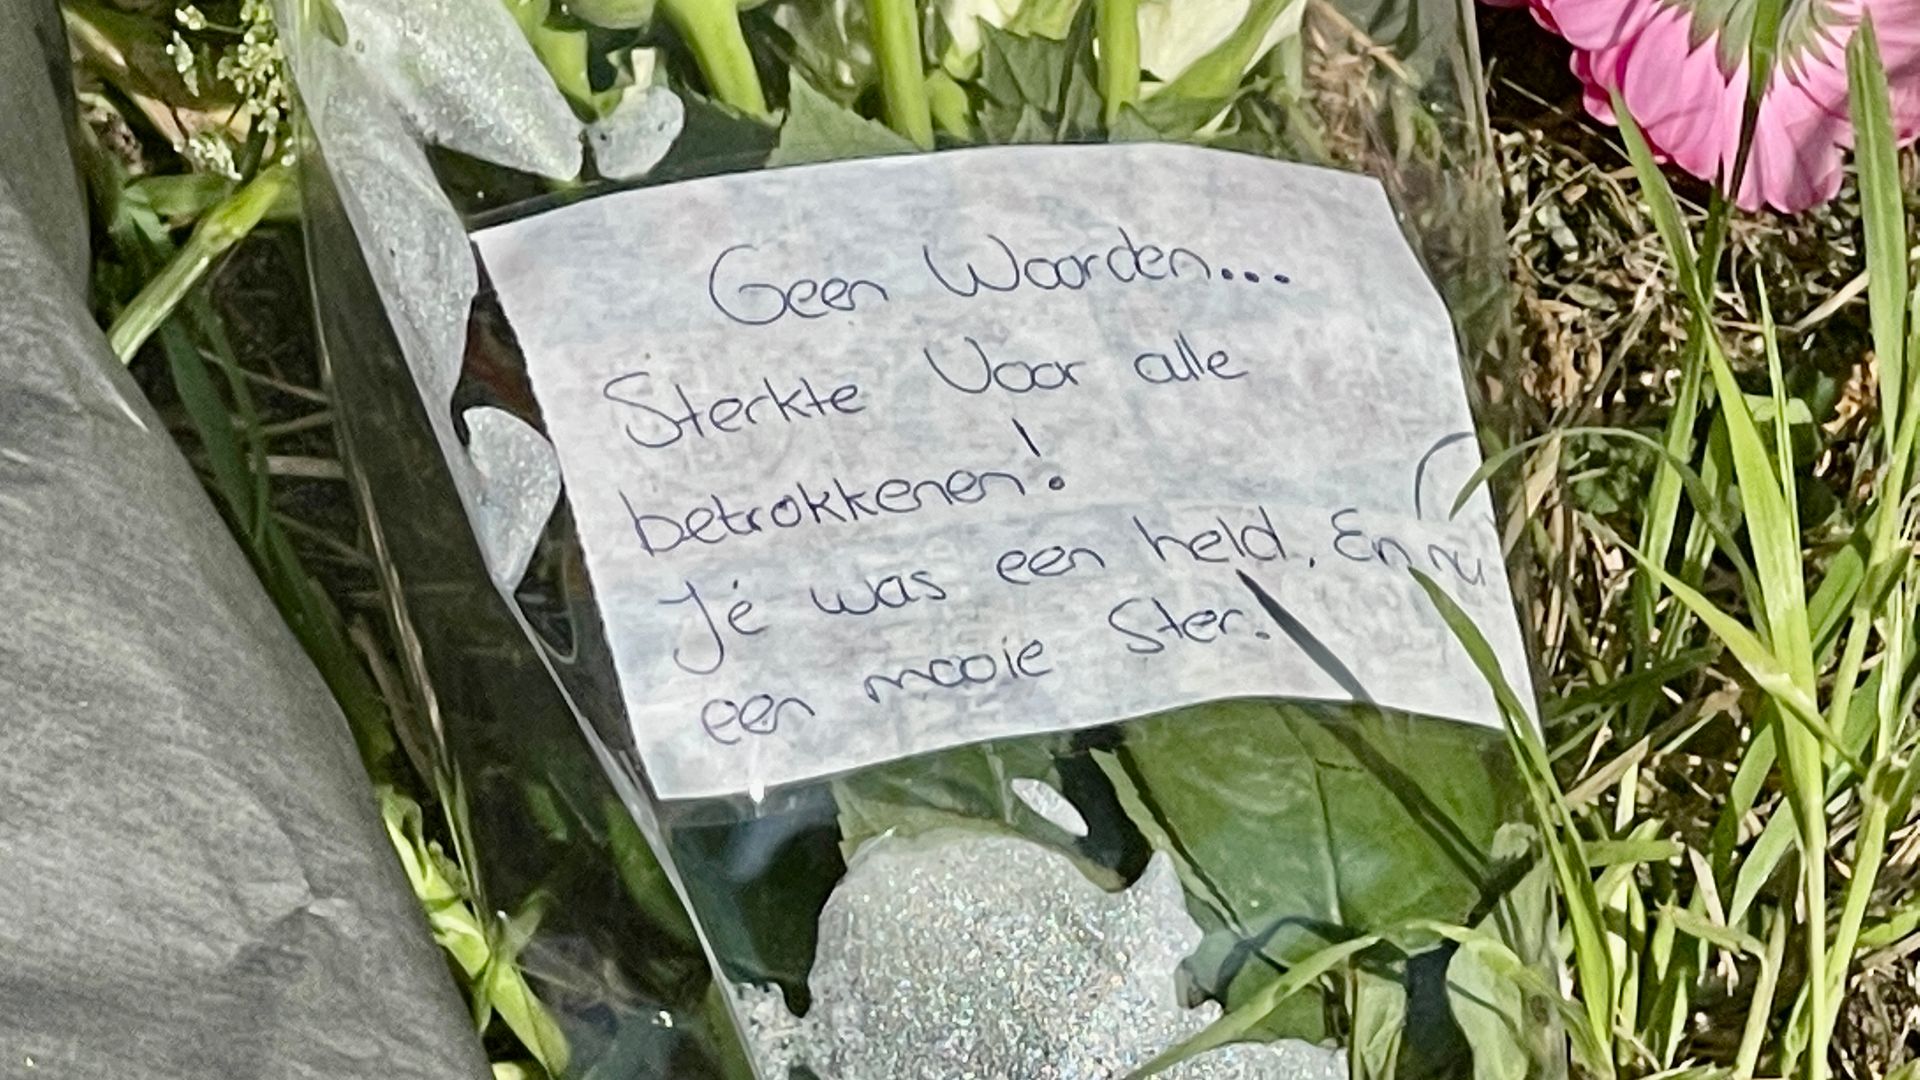 Geen Woorden...
Sterkte Voor alle
betrokkenen!
Je was een held. En nu
een mooie Ster.